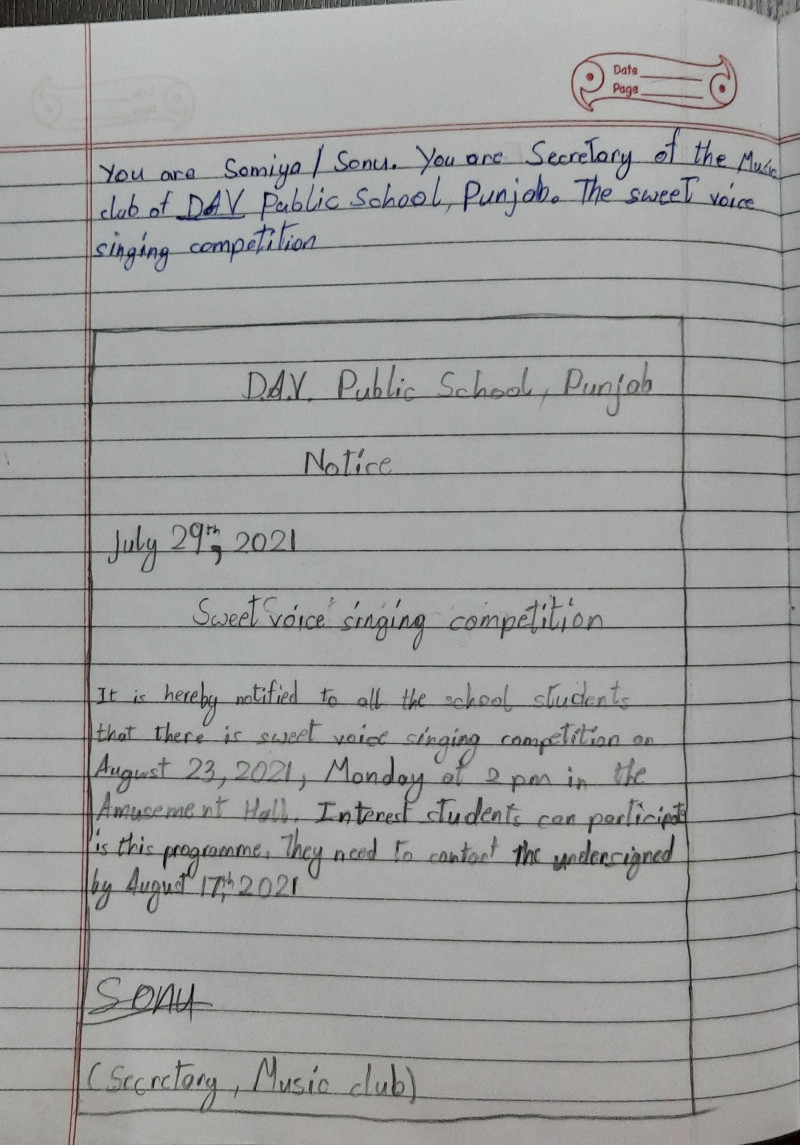 Date
Page
You are Somiya / Sonu. You are Secretary of the Music
club of DAV Public School, Punjab. The sweet voice
singing competition
D.A.V. Public School, Punjab
Notice
July 29th, 2021
Sweet 'voice' singing competition
It is hereby notified to all the school students
that there is sweet voice singing competition on
August 23, 2021, Monday at 2 pm in the
Amusement Hall. Interest students can participate
is this programme. They need to contact the undersigned
by August 17th, 2021
Sonu
(Secretary, Music club)